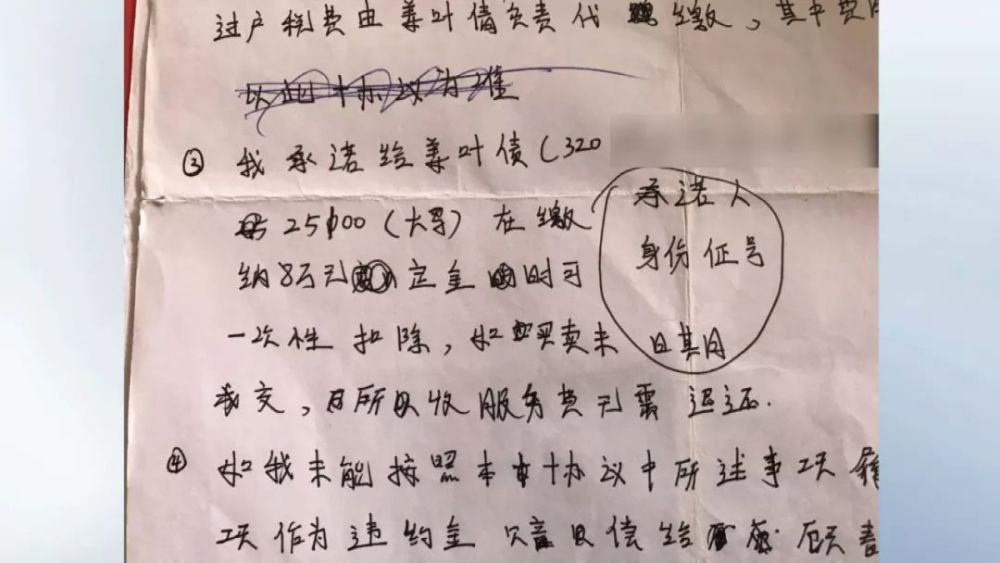 过户税费由姜叶倩负责代缴，其中费用
以此协议为准
③ 我承诺给姜叶债（320
25000（大写）在缴
纳8万元定金时可
一次性扣除，如买卖未
成交，所收服务费无需退还.
承诺人
身份证号
日期
④ 如我未能按照本协议中所述事项
项作为违约金赔偿给